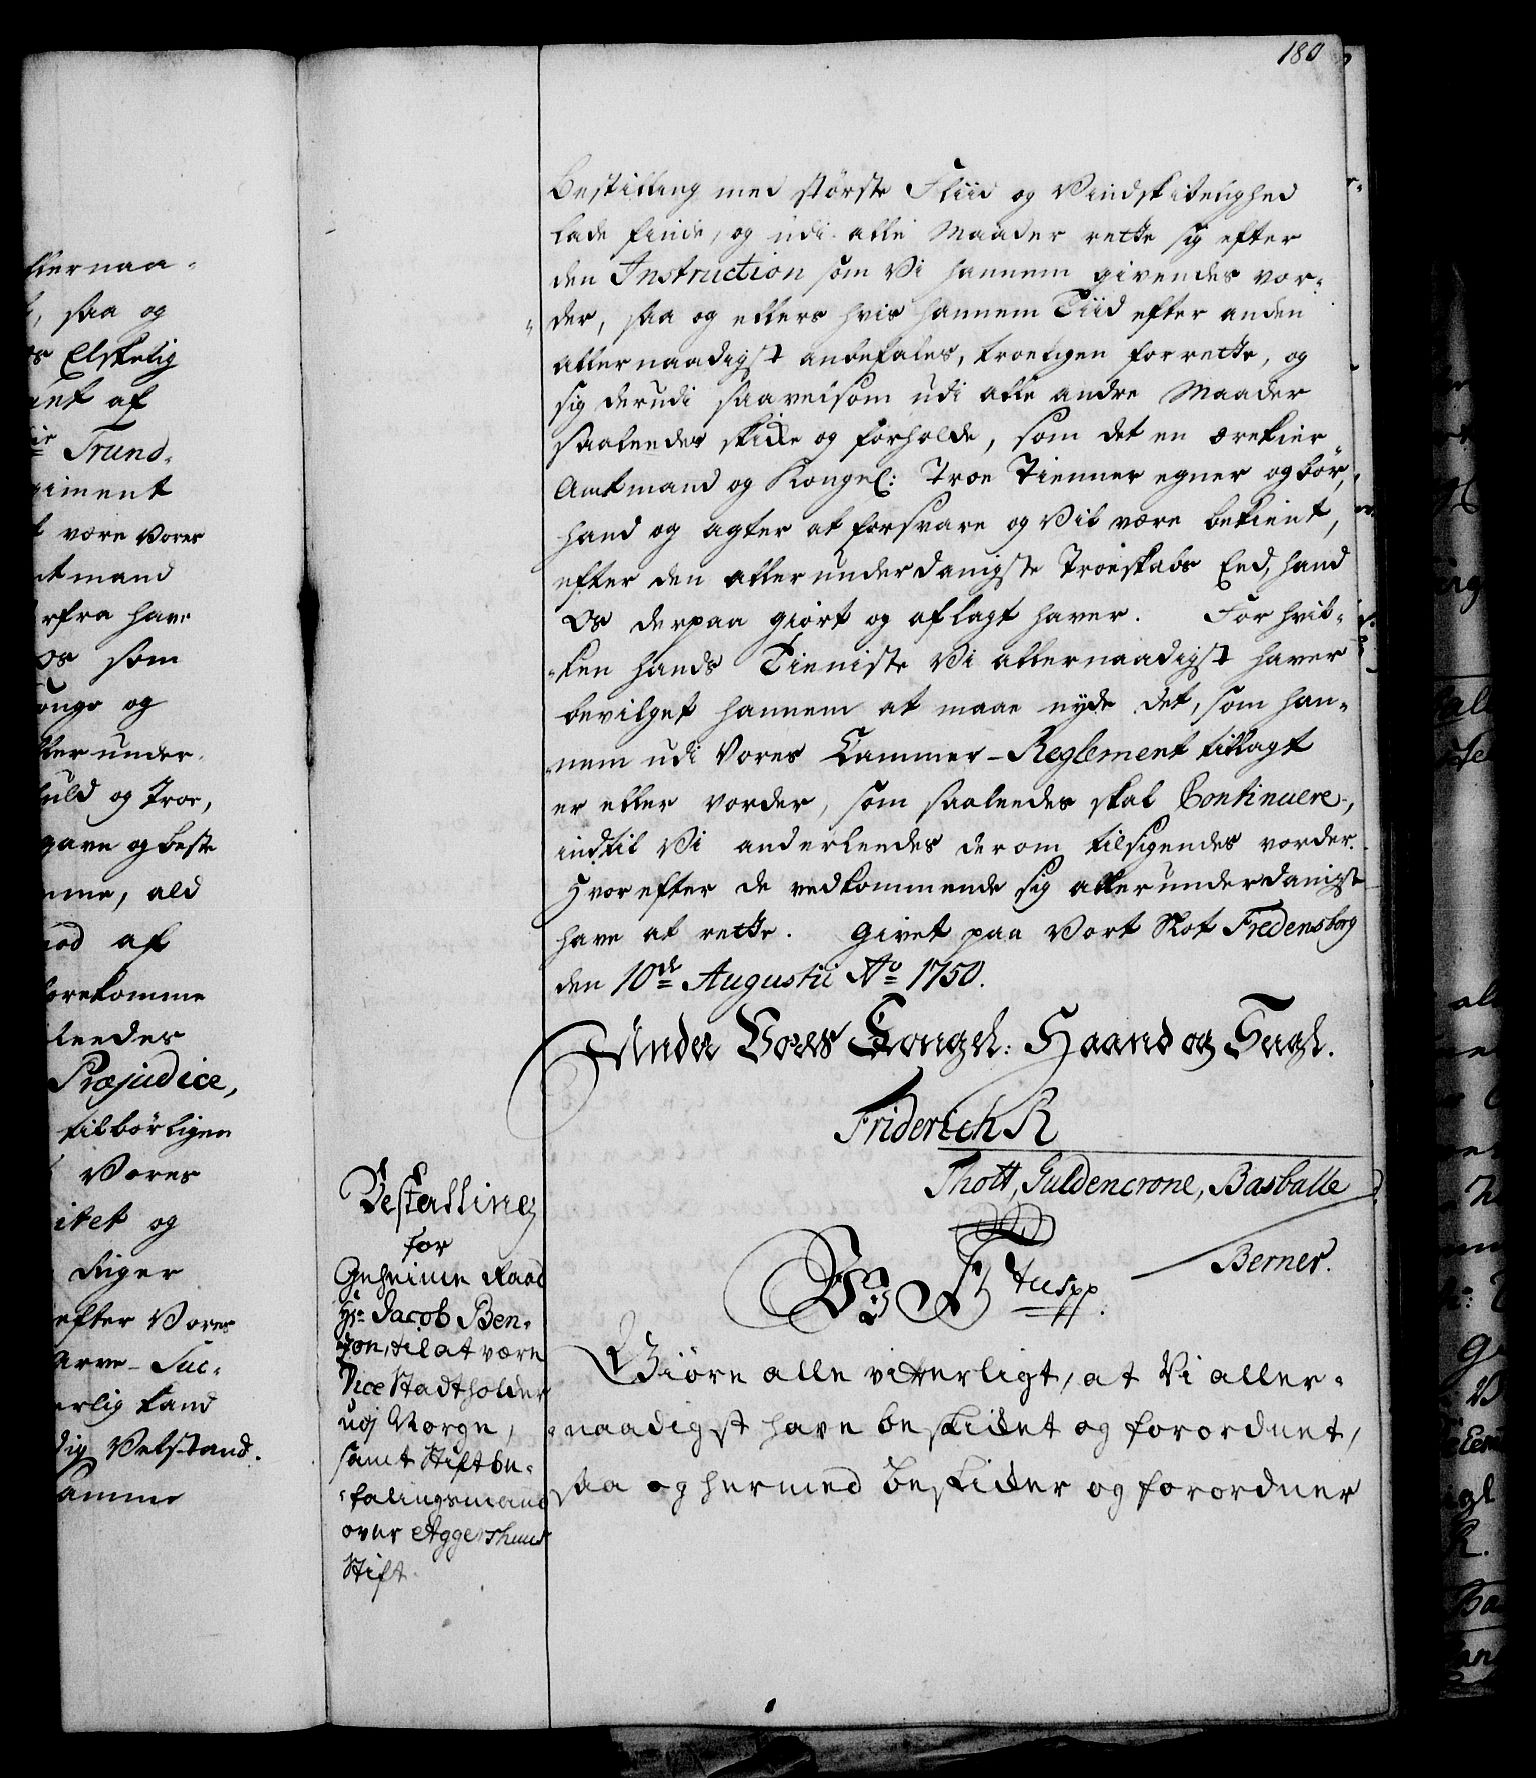 180
Bestilling med störste Fliid og Vindskibelighed
lade finde, og udi alle Maader rette sig efter
den Instruction som Vi hannem givendes vor-
der, saa og ellers hvis hannem Tiid efter anden
allernaadigst anbefales, troeligen forrette, og
sig derudi saavelsom udi alle andre Maader
saaleedes skicke og forholde, som det en ærekier
Amtmand og Kongel: Troe Tienner egner og bör,
hand og agter at forsvare og Vil være bekient,
efter den allerunderdanigste Troeskabs Eed, hand
Os derpaa giort og aflagt haver. For hvil-
-ken hands Tieniste Vi allernaadigst haver
bevilget hannem at maae nyde det, som han-
nem udi Vores Cammer-Reglement tillagt
er eller vorder, som saaleedes skal Continuere,
indtil Vi anderleedes derom tilsigendes vorder.
Hvorefter de vedkommende sig allerunderdanigst
have at rette. Givet paa Vort Slot Fredensborg
den 10de Augustii Ao 1750.
Under Vores Kongel: Haand og Segl.
Friderich R
Thott, Güldencrone, Basballe
Berner.
Bestalling
for
Geheime Raad
Hr Jacob Ben-
zon, til at være
Vice Stadtholder
udj Norge,
samt Stiftbe-
-falingsmand
over Aggershuus
Stift.
V: F: 5tus pp.
Giöre alle vitterligt, at Vi aller-
-naadigst have beskicket og forordnet,
saa og hermed beskicker og forordner
-llernaa-
saa og
Elskelig
af
Trund-
-giment
være Vores
-mtmand
-rfra have
Os som
-onge og
-ller under-
huld og Troe,
gavn og beste
-mme, ald
-nod af
forekomme
-leedes
Præjudice,
tilbörligen
Vores
-itet og
Riger
efter Vores
Arve-Suc-
-erlig kand
Velstand.
samme